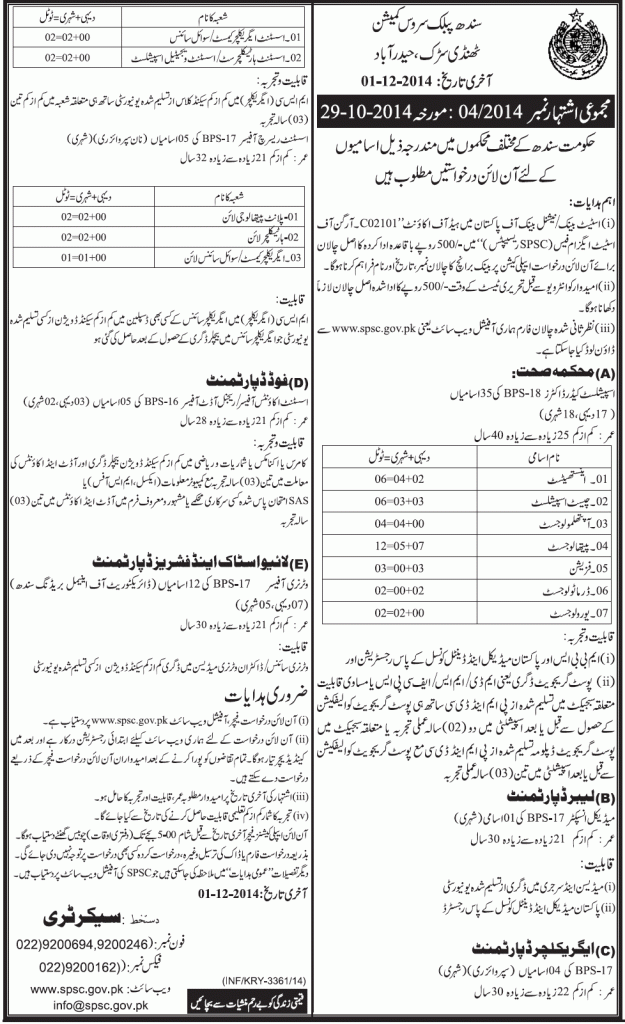 سندھ پبلک سروس کمیشن
ٹھنڈی سڑک، حیدرآباد
آخری تاریخ: 01-12-2014
مجموعی اشتہار نمبر 04/2014: مورخہ 29-10-2014
حکومت سندھ کے مختلف محکموں میں مندرجہ ذیل اسامیوں
کے لئے آن لائن درخواستیں مطلوب ہیں
اہم ہدایات:
(i) اسٹیٹ بینک/نیشنل بینک آف پاکستان میں ہیڈ آف اکاؤنٹ "C02101۔ آرگن آف
اسٹیٹ ایگزام فیس (SPSC ریسیپٹس)" میں -/500 روپے باقاعدہ ادا کردہ کا اصل چالان
برائے آن لائن درخواست اپلی کیشن پر بینک برانچ کا چالان نمبر، تاریخ اور نام فراہم کرنا ہوگا۔
(ii) امیدوار کو انٹرویو سے قبل تحریری ٹیسٹ کے وقت -/500 روپے کا ادا شدہ اصل چالان لازماً
دکھانا ہوگا۔
(iii) نظر ثانی شدہ چالان فارم ہماری آفیشل ویب سائٹ یعنی www.spsc.gov.pk سے
ڈاؤن لوڈ کیا جاسکتا ہے۔
(A) محکمہ صحت:
اسپیشلسٹ کیڈر ڈاکٹرز BPS-18 کی 35 اسامیاں
(17 دیہی، 18 شہری)
عمر: کم از کم 25 زیادہ سے زیادہ 40 سال
نام اسامی دیہی+شہری=ٹوٹل
01۔ انستھیٹسٹ 06=04+02
02۔ چیسٹ اسپیشلسٹ 06=03+03
03۔ آپتھلمولوجسٹ 04=04+00
04۔ پیتھالوجسٹ 12=05+07
05۔ فزیشن 03=00+03
06۔ ڈرماٹولوجسٹ 02=00+02
07۔ یورولوجسٹ 02=02+00
قابلیت و تجربہ:
(i) ایم بی بی ایس اور پاکستان میڈیکل اینڈ ڈینٹل کونسل کے پاس رجسٹریشن اور
(ii) پوسٹ گریجویٹ ڈگری یعنی ایم ڈی/ایم ایس/ایف سی پی ایس یا مساوی قابلیت
متعلقہ سبجیکٹ میں تسلیم شدہ از پی ایم اینڈ ڈی سی ساتھ ہی پوسٹ گریجویٹ کوالیفکیشن
کے حصول سے قبل یا بعد اسپیشلٹی میں دو (02) سالہ عملی تجربہ یا متعلقہ سبجیکٹ میں
پوسٹ گریجویٹ ڈپلومہ تسلیم شدہ از پی ایم اینڈ ڈی سی مع پوسٹ گریجویٹ کوالیفکیشن
سے قبل یا بعد اسپیشلٹی میں تین (03) سالہ عملی تجربہ
(B) لیبر ڈپارٹمنٹ
میڈیکل انسپکٹر BPS-17 کی 01 اسامی (شہری)
عمر: کم از کم 21 زیادہ سے زیادہ 30 سال
قابلیت:
(i) میڈیسن اینڈ سرجری میں ڈگری از تسلیم شدہ یونیورسٹی
(ii) پاکستان میڈیکل اینڈ ڈینٹل کونسل کے پاس رجسٹرڈ
(C) ایگریکلچر ڈپارٹمنٹ
BPS-17 کی 04 اسامیاں (سپروائزری) (شہری)
عمر: کم از کم 22 زیادہ سے زیادہ 30 سال
شعبہ کا نام دیہی+شہری=ٹوٹل
01۔ اسسٹنٹ ایگریکلچر کیمسٹ/سوائل سائنس 02=02+00
02۔ اسسٹنٹ ہارٹیکلچرسٹ/اسسٹنٹ ویجیٹیبل اسپیشلسٹ 02=02+00
قابلیت و تجربہ:
ایم ایس سی (ایگریکلچر) میں کم از کم سیکنڈ کلاس از تسلیم شدہ یونیورسٹی ساتھ ہی متعلقہ شعبہ میں کم از کم تین
(03) سالہ تجربہ
اسسٹنٹ ریسرچ آفیسر BPS-17 کی 05 اسامیاں (نان سپروائزری) (شہری)
عمر: کم از کم 21 زیادہ سے زیادہ 32 سال
شعبہ کا نام دیہی+شہری=ٹوٹل
01۔ پلانٹ پیتھالوجی لائن 02=02+00
02۔ ہارٹیکلچر لائن 02=02+00
03۔ ایگریکلچر کیمسٹ/سوائل سائنس لائن 01=01+00
قابلیت:
ایم ایس سی (ایگریکلچر) میں ایگریکلچر سائنس کے کسی بھی ڈسپلین میں کم از کم سیکنڈ ڈویژن از کسی تسلیم شدہ
یونیورسٹی جو ایگریکلچر سائنس میں بیچلر ڈگری کے حصول کے بعد حاصل کی گئی ہو
(D) فوڈ ڈپارٹمنٹ
اسسٹنٹ اکاؤنٹس آفیسر/ریجنل آڈٹ آفیسر BPS-16 کی 05 اسامیاں (03 دیہی، 02 شہری)
عمر: کم از کم 21 زیادہ سے زیادہ 28 سال
قابلیت و تجربہ:
کامرس یا اکنامکس یا شماریات و ریاضی میں کم از کم سیکنڈ ڈویژن بیچلر ڈگری اور آڈٹ اینڈ اکاؤنٹس کی
معاملت میں تین (03) سالہ تجربہ مع کمپیوٹر معلومات (ایکسل، ایم ایس آفس) یا
SAS امتحان پاس شدہ کسی سرکاری محکمے یا مشہور و معروف فرم میں آڈٹ اینڈ اکاؤنٹس میں تین (03)
سالہ تجربہ
(E) لائیو اسٹاک اینڈ فشریز ڈپارٹمنٹ
وٹرنری آفیسر BPS-17 کی 12 اسامیاں (ڈائریکٹوریٹ آف اینیمل بریڈنگ سندھ)
(07 دیہی، 05 شہری)
عمر: کم از کم 21 زیادہ سے زیادہ 30 سال
قابلیت:
وٹرنری سائنس/ڈاکٹر ان وٹرنری میڈیسن میں ڈگری کم از کم سیکنڈ ڈویژن از کسی تسلیم شدہ یونیورسٹی
ضروری ہدایات
(i) آن لائن درخواست فیچر، آفیشل ویب سائٹ www.spsc.gov.pk پر دستیاب ہے۔
(ii) آن لائن درخواست کے لئے ہماری ویب سائٹ کیلئے ابتدائی رجسٹریشن درکار ہے اور بعد میں
کینڈیڈیچر تیار ہوگا۔ تمام تقاضوں کو پورا کرنے کے بعد امیدوار ان آن لائن درخواست فیچر کے ذریعے
درخواست دے سکتے ہیں۔
(iii) اشتہار کی آخری تاریخ پر امیدوار مطلوبہ عمر، قابلیت اور تجربہ کا حامل ہو۔
(iv) تجربہ کا شمار کم از کم تعلیمی قابلیت حاصل کرنے کی تاریخ سے کیا جائے گا۔
آن لائن اپلی کیشنز فیچر آخری تاریخ سے قبل شام 5-00 بجے تک (دفتری اوقات) چوبیس گھنٹے دستیاب ہوگا۔
بذریعہ درخواست فارم یا ڈاک کی ترسیل وغیرہ، درخواست کردہ کسی بھی درخواست پر توجہ نہیں دی جائے گی۔
دیگر تفصیلات "عمومی ہدایات" میں ملاحظہ کی جاسکتی ہیں جو SPSC کی آفیشل ویب سائٹ پر دستیاب ہیں۔
آخری تاریخ: 01-12-2014
دستخط: سیکرٹری
فون نمبر: (022)9200694,9200246
فیکس نمبر: (022)9200162
ویب سائٹ: www.spsc.gov.pk
info@spsc.gov.pk
(INF/KRY-3361/14)
قیمتی زندگی کو بے رحم منشیات سے بچائیں